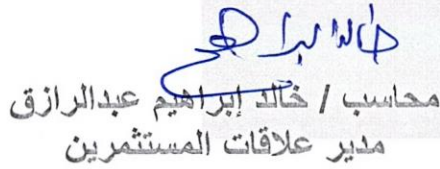 خالد ابراهيم
محاسب / خالد إبراهيم عبدالرازق
مدير علاقات المستثمرين